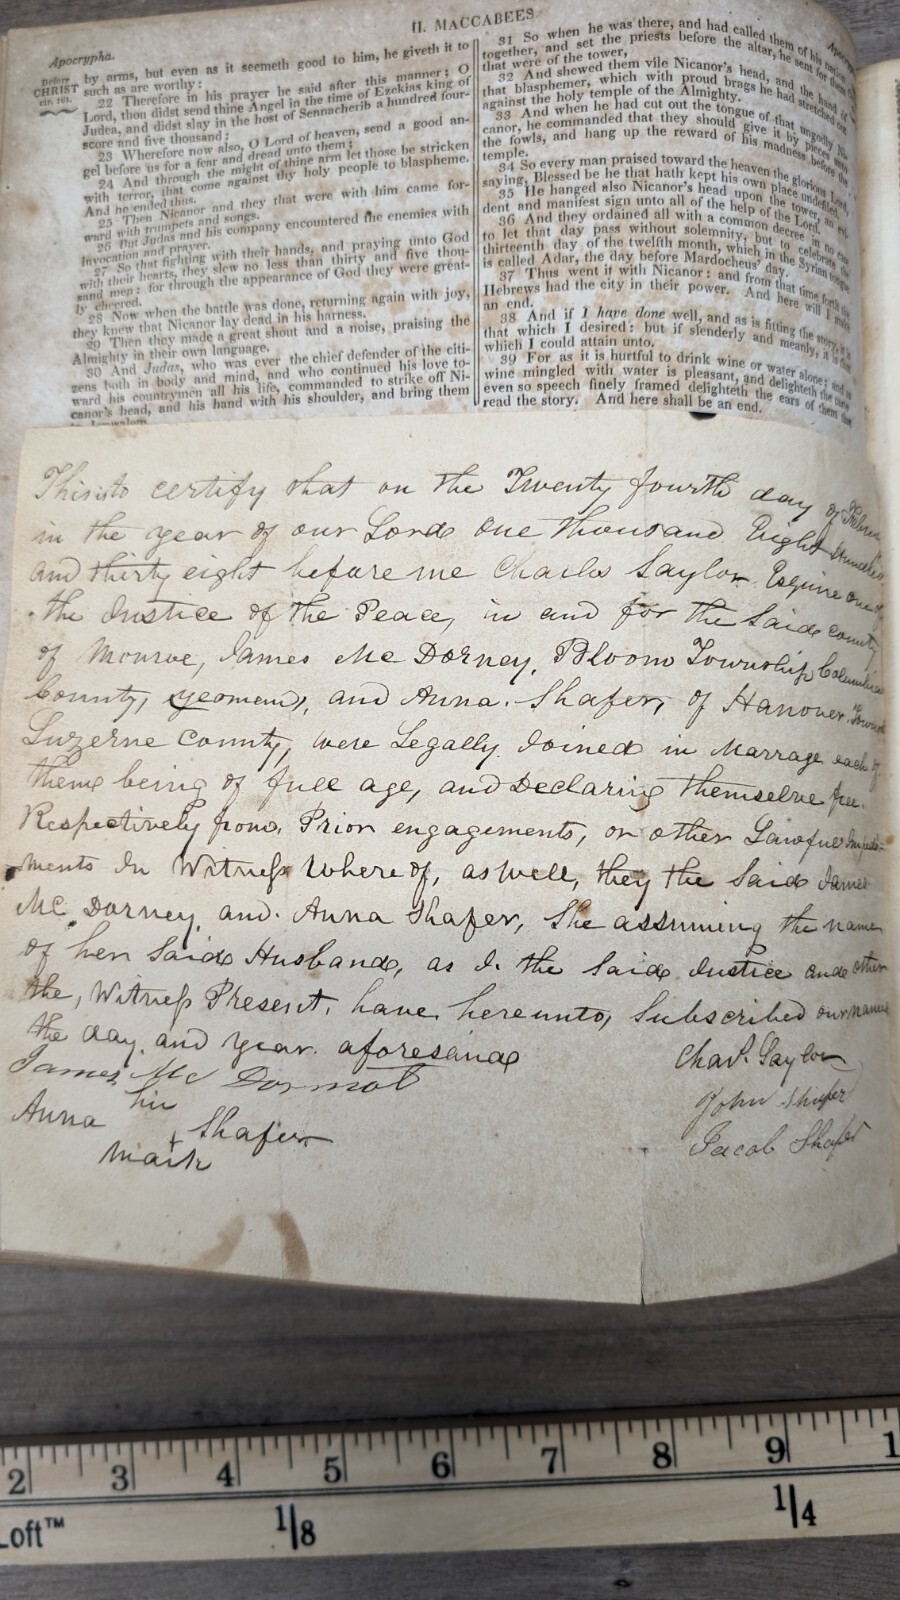 II. MACCABEES
Apocrypha.
Before
CHRIST
cir. 161.
by arms, but even as it seemeth good to him, he giveth it to
such as are worthy:
22 Therefore in his prayer he said after this manner; O
Lord, thou didst send thine Angel in the time of Ezekias king of
Judea, and didst slay in the host of Sennacherib a hundred four-
score and five thousand:
23 Wherefore now also, O Lord of heaven, send a good an-
gel before us for a fear and dread unto them;
24 And through the might of thine arm let those be stricken
with terror, that come against thy holy people to blaspheme.
And he ended thus.
25 Then Nicanor and they that were with him came for-
ward with trumpets and songs.
26 But Judas and his company encountered the enemies with
invocation and prayer.
27 So that fighting with their hands, and praying unto God
with their hearts, they slew no less than thirty and five thou-
sand men: for through the appearance of God they were great-
ly cheered.
28 Now when the battle was done, returning again with joy,
they knew that Nicanor lay dead in his harness.
29 Then they made a great shout and a noise, praising the
Almighty in their own language.
30 And Judas, who was ever the chief defender of the citi-
zens both in body and mind, and who continued his love to-
ward his countrymen all his life, commanded to strike off Ni-
canor's head, and his hand with his shoulder, and bring them
31 So when he was there, and had called them of his nation
together, and set the priests before the altar, he sent for them
that were of the tower,
32 And shewed them vile Nicanor's head, and the hand of
that blasphemer, which with proud brags he had stretched out
against the holy temple of the Almighty.
33 And when he had cut out the tongue of that ungodly Ni-
canor, he commanded that they should give it by pieces unto
the fowls, and hang up the reward of his madness before the
temple.
34 So every man praised toward the heaven the glorious Lord,
saying, Blessed be he that hath kept his own place undefiled.
35 He hanged also Nicanor's head upon the tower, an evi-
dent and manifest sign unto all of the help of the Lord.
36 And they ordained all with a common decree in no case
to let that day pass without solemnity, but to celebrate the
thirteenth day of the twelfth month, which in the Syrian tongue
is called Adar, the day before Mardocheus' day.
37 Thus went it with Nicanor: and from that time forth the
Hebrews had the city in their power. And here will I make
an end.
38 And if I have done well, and as is fitting the story, it is
that which I desired: but if slenderly and meanly, it is that
which I could attain unto.
39 For as it is hurtful to drink wine or water alone; and as
wine mingled with water is pleasant, and delighteth the taste
even so speech finely framed delighteth the ears of them that
read the story. And here shall be an end.
This is to certify that on the Twenty fourth day of
in the year of our Lord one thousand Eight Hundred
and thirty eight before me Charles Saylor Esquire one of
the Justice of the Peace, in and for the Said county
of Monroe, James Mc Dorney, Bloom Township Columbia
County, yeoman, and Anna. Shafer, of Hanover
Luzerne County, were Legally Joined in Marrage each of
them being of full age, and Declaring themselve free
Respectively from, Prior engagements, or other Lawful Impedi-
ments In Witness Whereof, as well, they the Said James
Mc Dorney and. Anna Shafer, She assuming the name
of her Said Husband, as I. the Said Justice and other
the, Witness Present, have hereunto, Subscribed our names
the day and year aforesaid
James Mc Dormot
Anna hir Shafer
mark
Chas. Saylor
John Shafer
Jacob Shafer
2 3 4 5 6 7 8 9 1
Loft™ 1/8 1/4